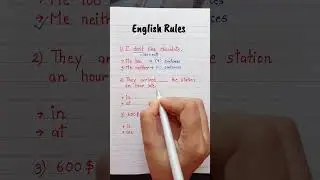 → Me too → (+) sentences
✓ Me neither → (-) sentences
2) They arrived ___ the station
an hour
→ in
→ at
3) 600 $
English Rules
1) I don't like chocolate.
→ Me too → (+) sentences
✓ Me neither → (-) sentences
2) They arrived ___ the station
an hour late.
→ in
→ at
3) 600 $
→ is